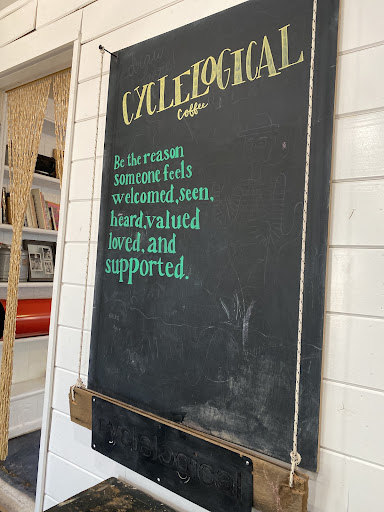 CYCLELOGICAL
Coffee
Be the reason
someone feels
welcomed, seen,
heard, valued
loved, and
supported.
cyclelogical